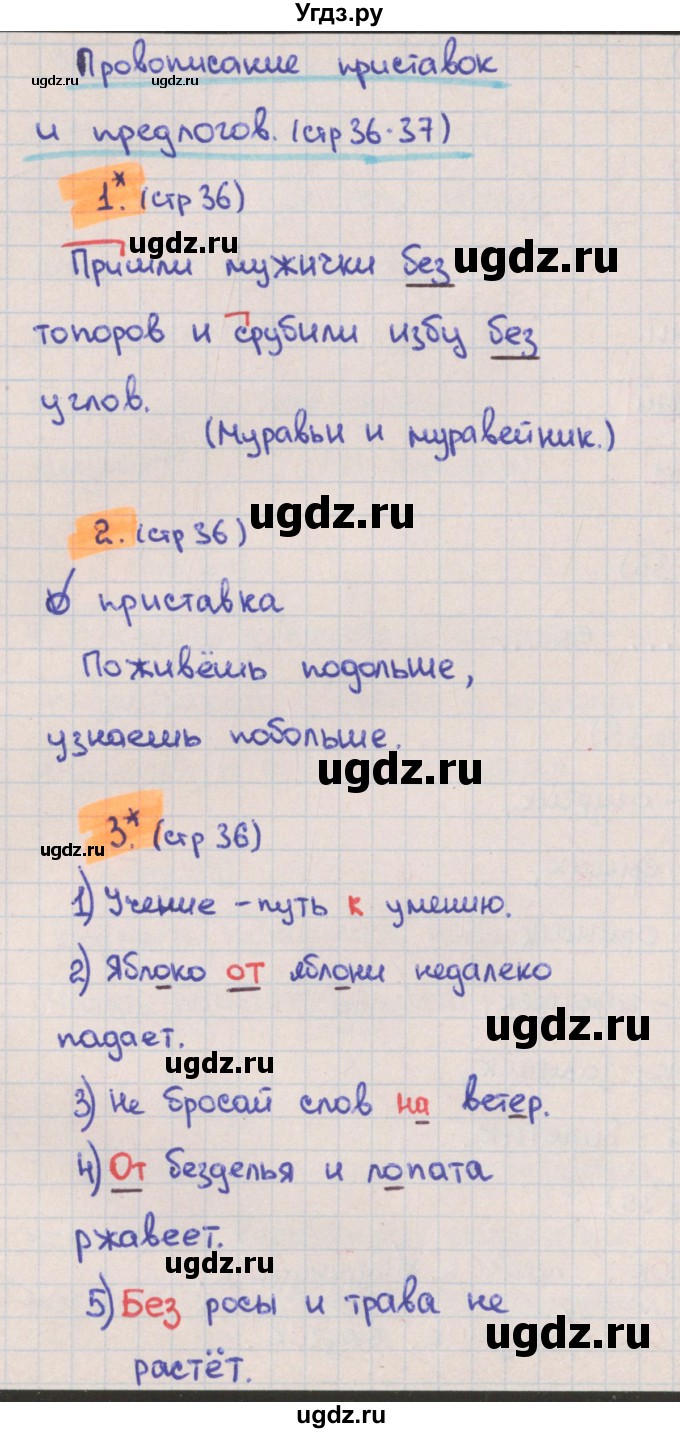 Угдз.ру
Провописание приставок
ugdz.ru ugdz.ru
и предлогов. (стр 36-37)
1.* (стр 36)
ugdz.ru
Пришли мужички без
ugdz.ru
топоров и срубили избу без
углов.
(Муравьи и муравейник.)
ugdz.ru
2. (стр 36)
приставка
Поживёшь подольше,
узнаешь побольше.
ugdz.ru
3.* (стр 36)
ugdz.ru
1) Учение - путь к умению.
2) Яблоко от яблони недалеко
ugdz.ru
падает.
ugdz.ru
3) Не бросай слов на ветер.
4) От безделья и лопата
ржавеет.
ugdz.ru
5) Без росы и трава не
ugdz.ru
растёт.
ugdz.ru